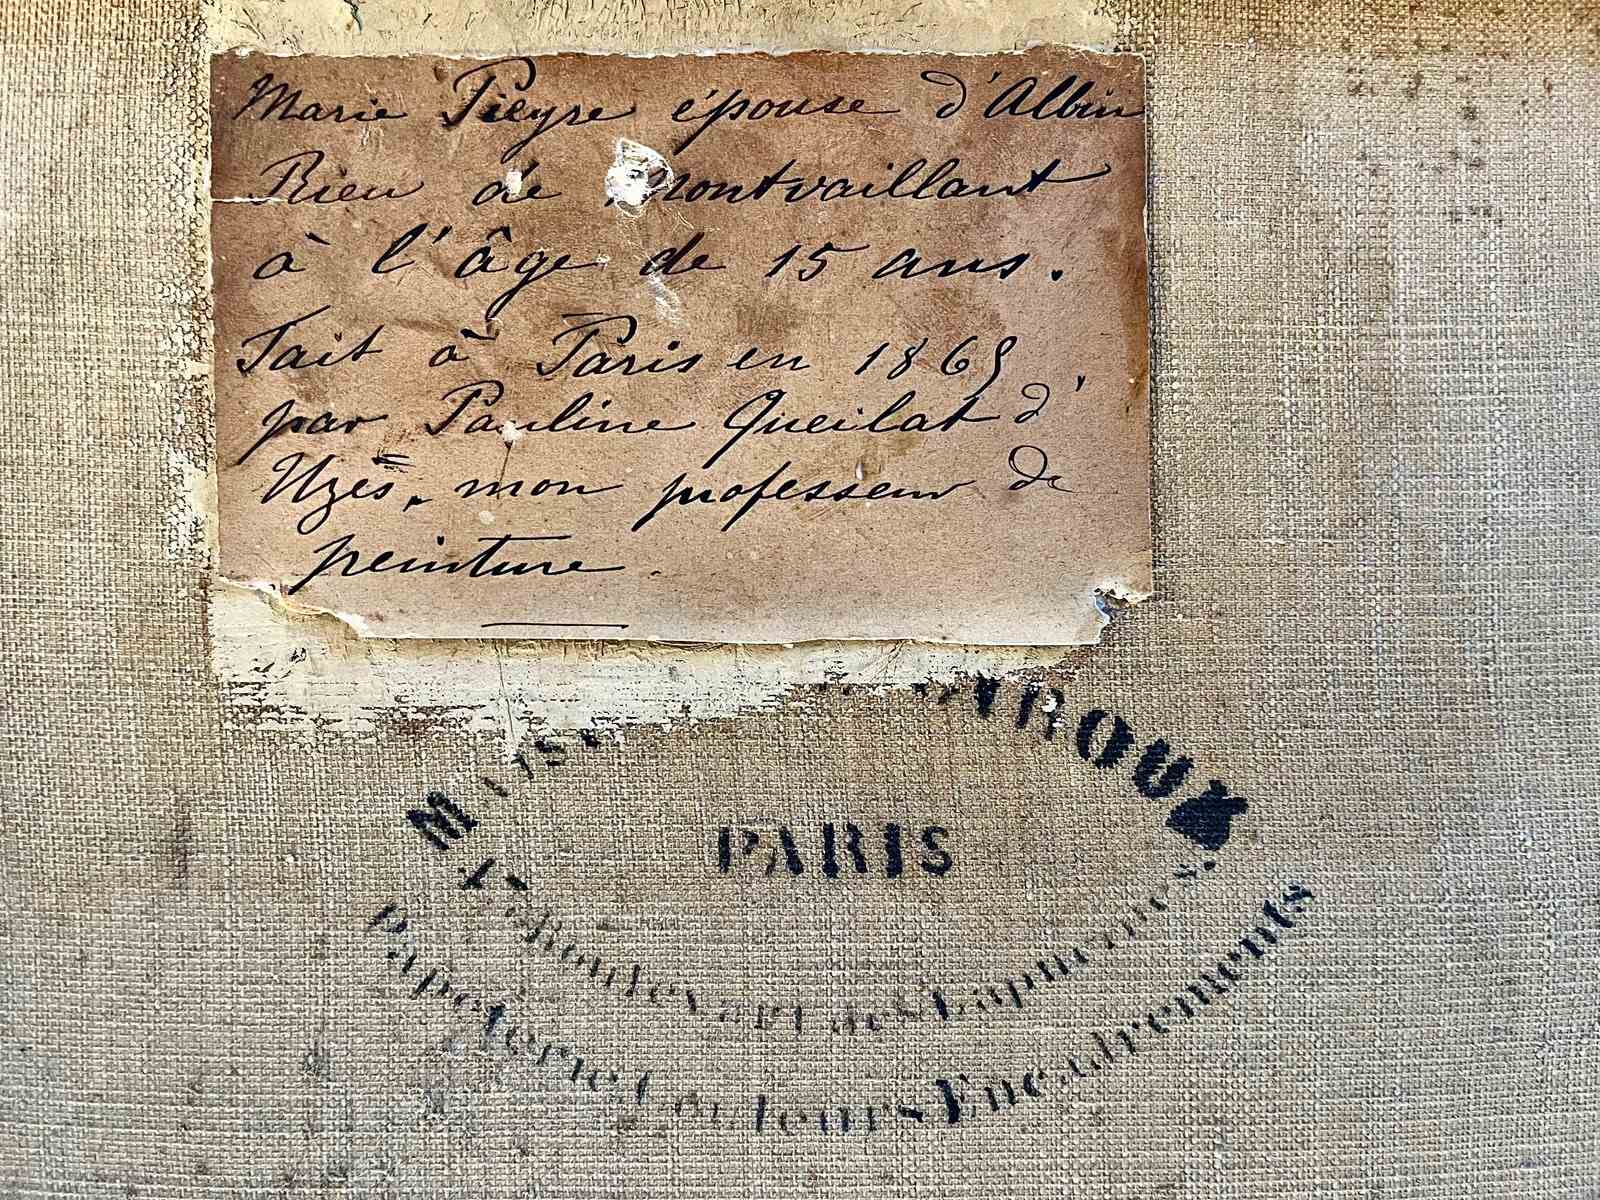 Marie Pieyre épouse d'Albin
Rieu de Montvaillant
à l'âge de 15 ans.
Fait à Paris en 1869
par Pauline Queilat d'
Uzès, mon professeur de
peinture.
PARIS
Boulevart des Capucines
Papeterie Couleurs Encadrements